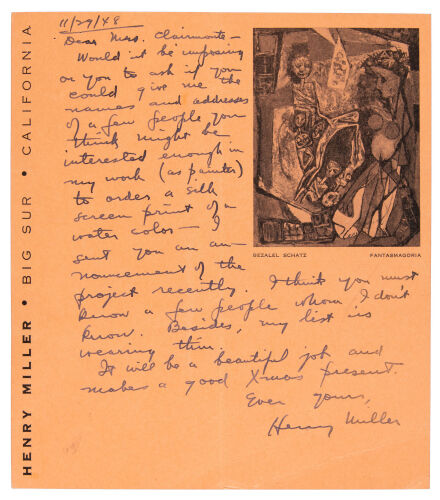 11/29/48
Dear Mrs. Clairmonte—
Would it be imposing
on you to ask if you
could give me the
names and addresses
of a few people you
think might be
interested enough in
my work (as painter)
to order a silk
screen print of a
water color — I
sent you an an-
nouncement of the
project recently. I think you must
know a few people whom I don't
know. Besides, my list is
wearing thin.
It will be a beautiful job and
makes a good Xmas present.
Ever yours,
Henry Miller
BEZALEL SCHATZ FANTASMAGORIA
HENRY MILLER • BIG SUR • CALIFORNIA